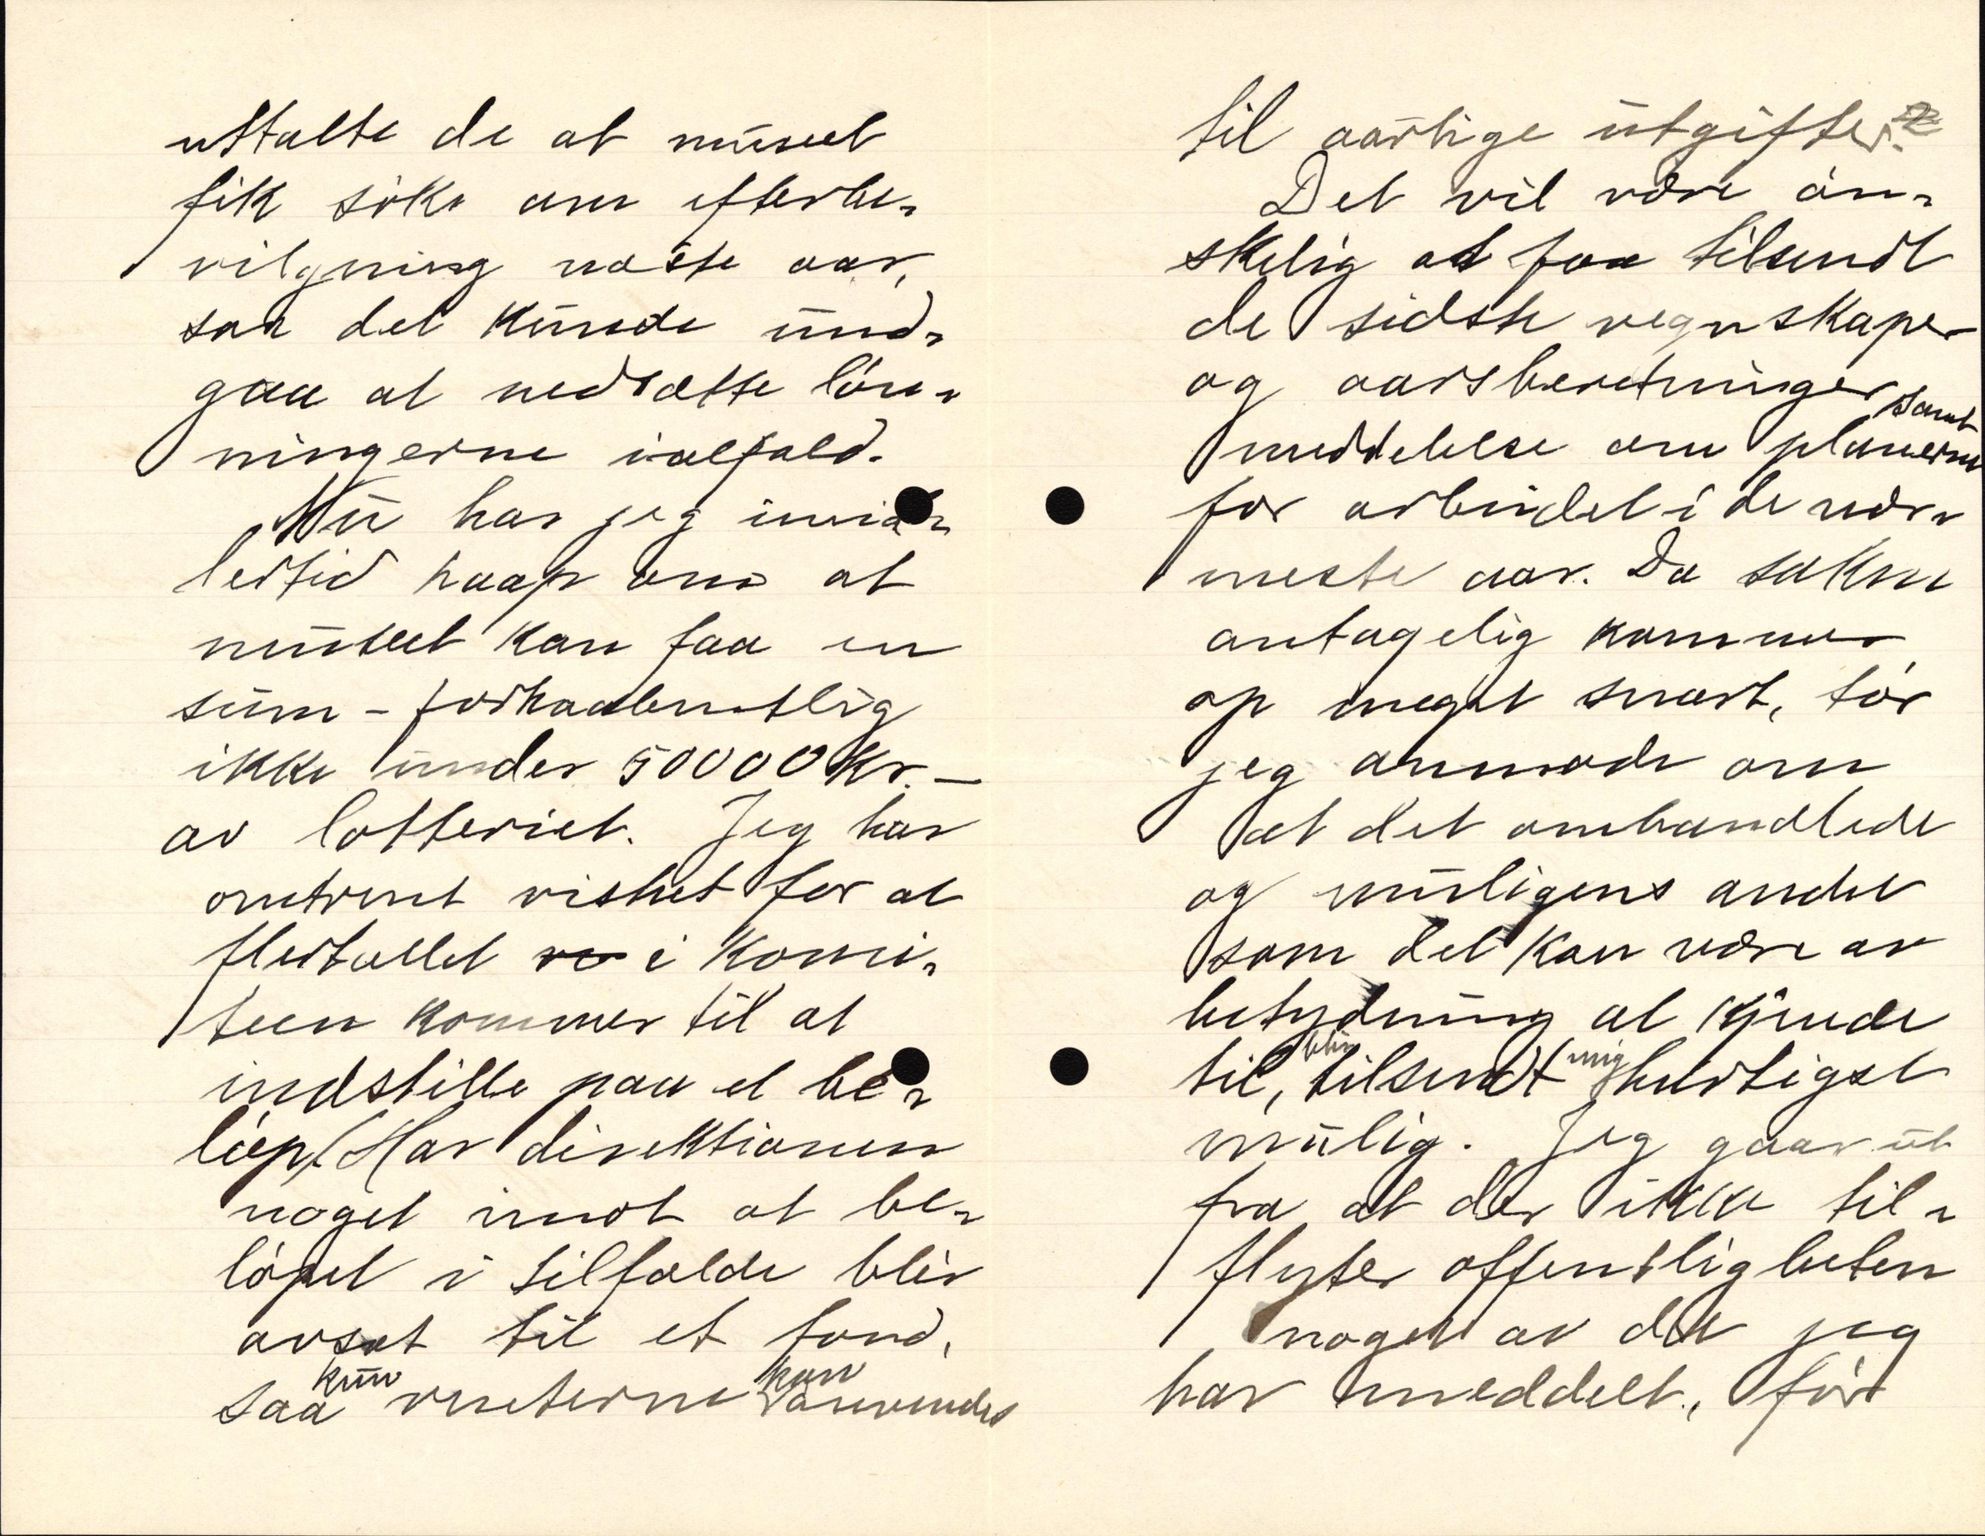 uttalte de at museet
fik söke om efterbe-
vilgning næste aar,
saa det kunde und-
gaa at nedsætte løn-
ningerne ialfald.
Nu har jeg imid-
lertid haap om at
museet kan faa en
sum - forhaabentlig
ikke under 50000 Kr. -
av lotteriet. Jeg har
omtrent vishet for at
flertallet i Komi-
teen kommer til at
indstille paa et be-
løp. Har direktionen
noget imot at be-
løpet i tilfælde blir
avsat til et fond,
saa kun renterne kan anvendes
til aarlige utgifter?
Det vil være øn-
skelig at faa tilsendt
de sidste regnskaper
og aarsberetninger samt
meddelelse om planerne
for arbeidet i de nær-
meste aar. Da saken
antagelig kommer
op meget snart, tør
jeg anmode om
at det omhandlede
og muligens andet
som det kan være av
betydning at kjende
til, blir tilsendt mig hurtigst
mulig. Jeg gaar ut
fra at der ikke til-
flyter offentligheten
noget av det jeg
har meddelt, før